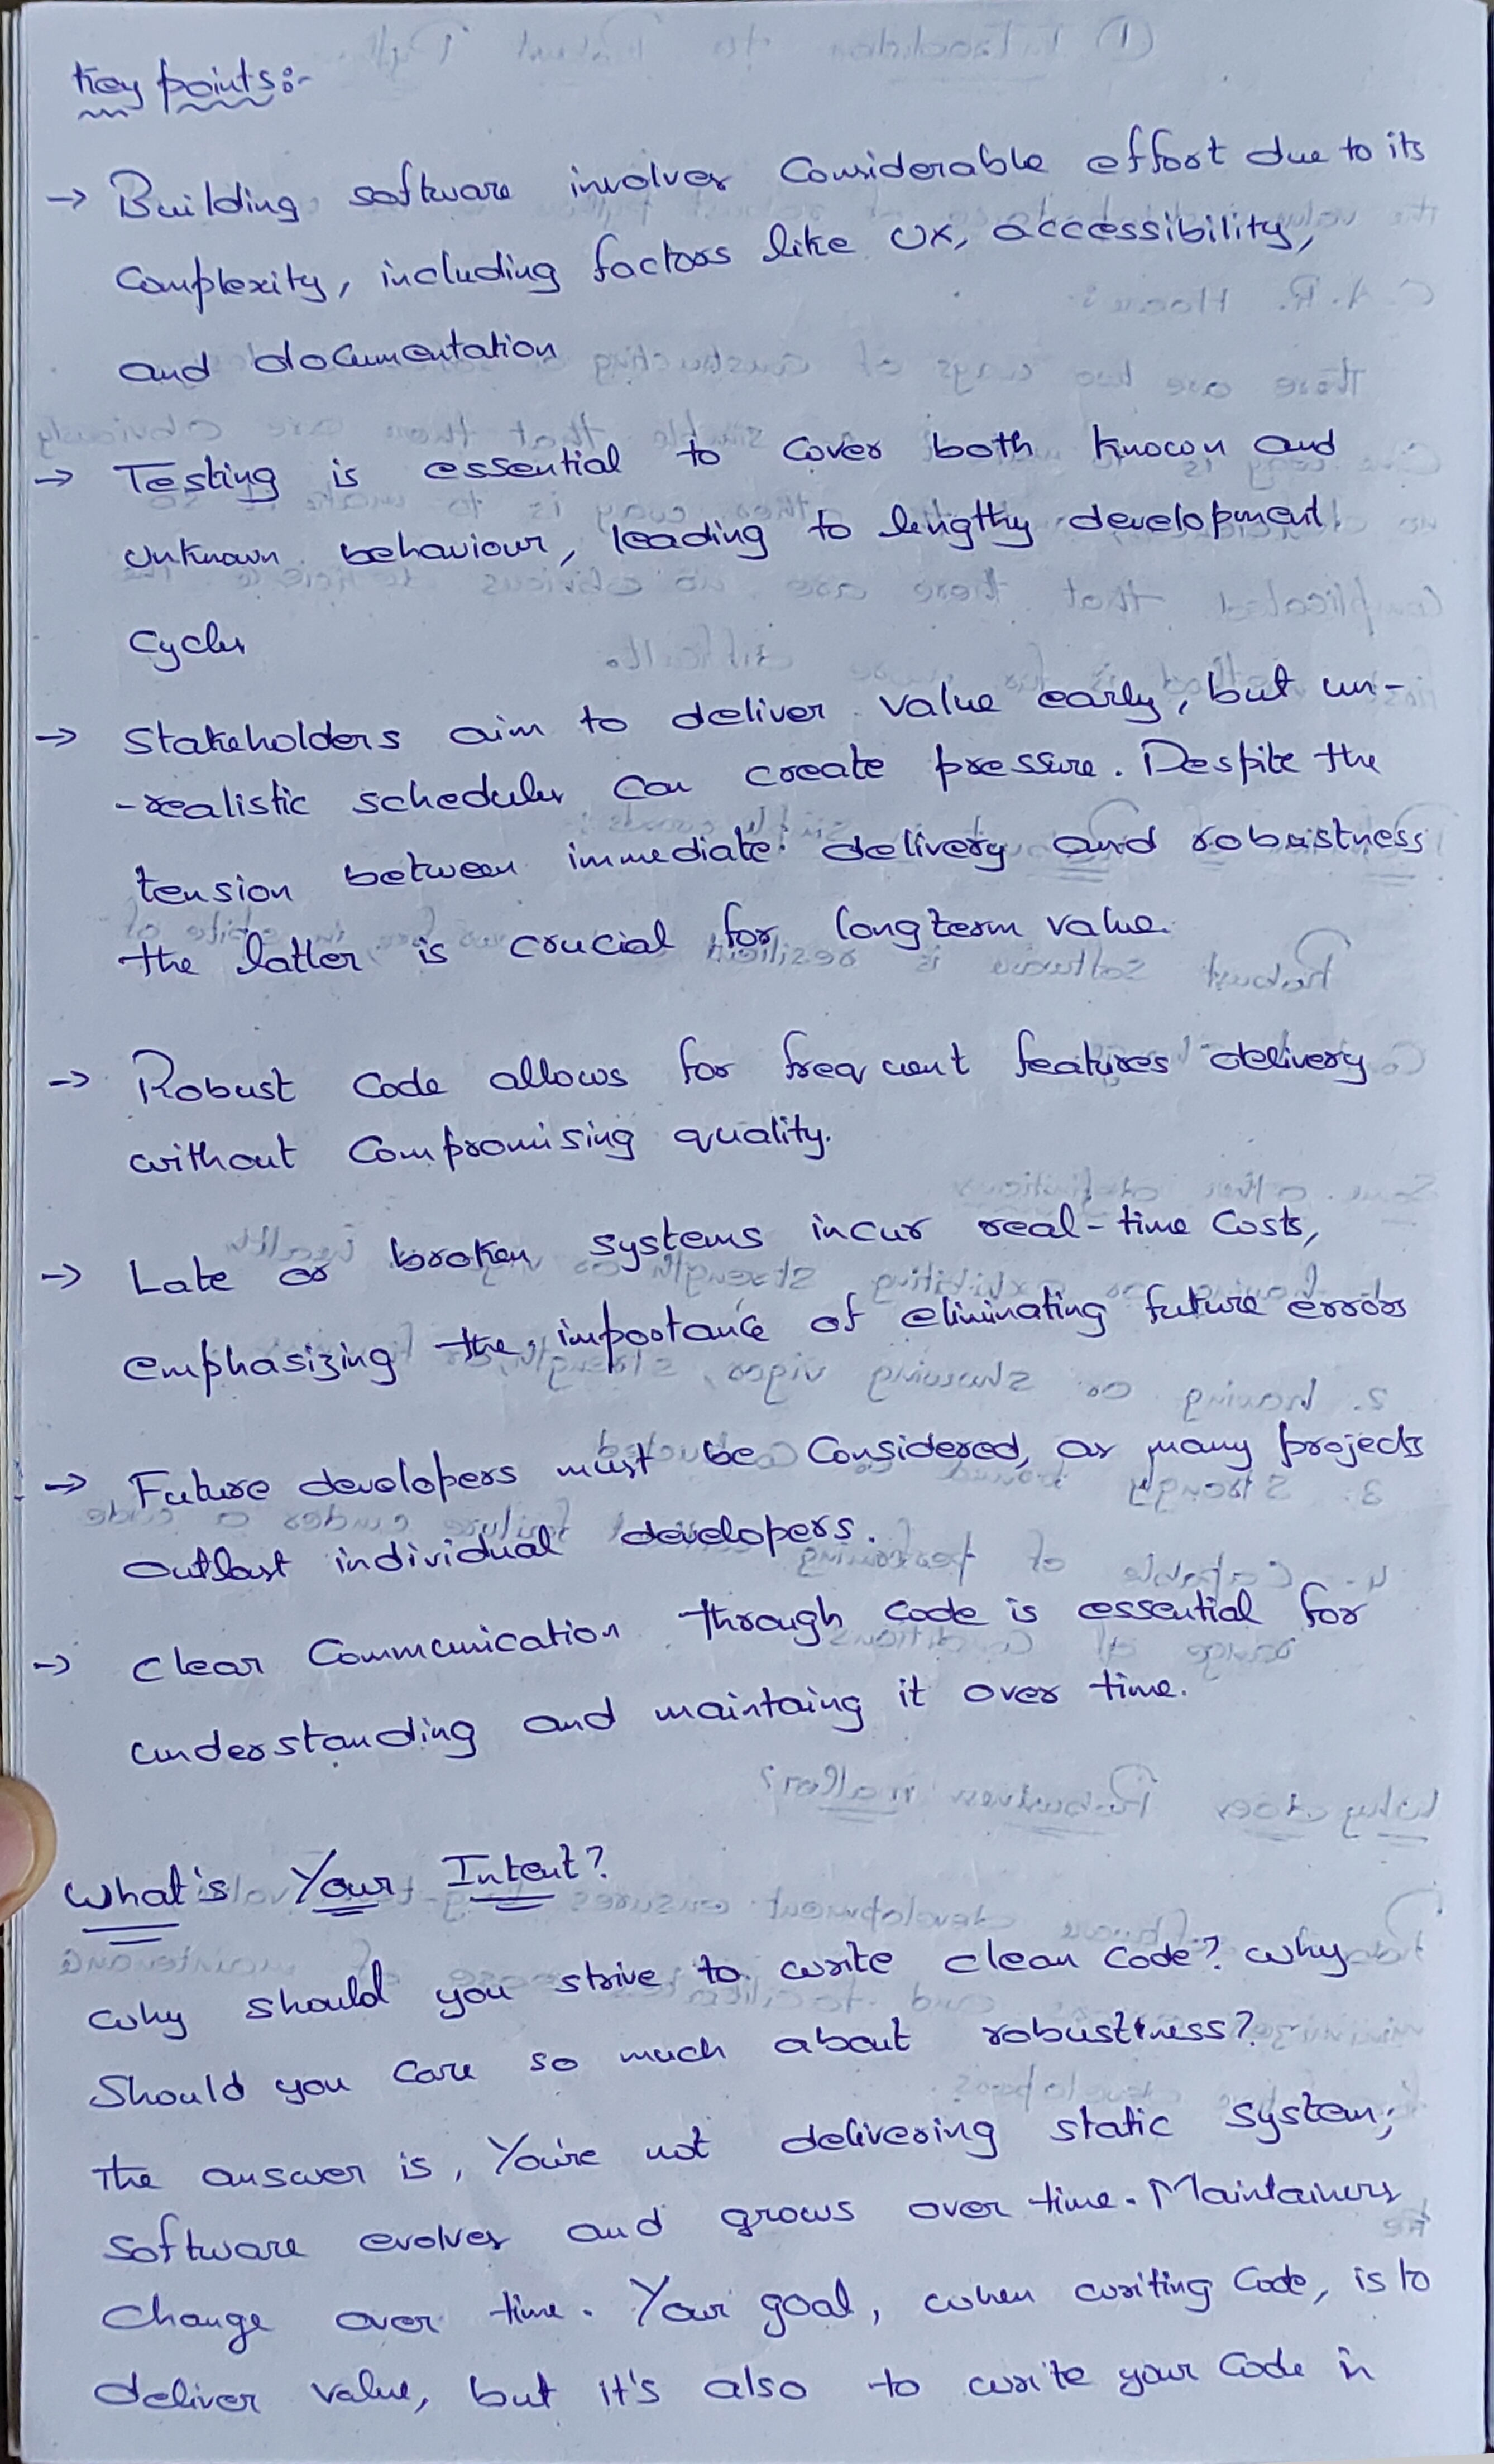 Key points:-
→ Building software involves Considerable effort due to its
Complexity, including factors like UX, accessibility,
and documentation
→ Testing is essential to cover both known and
unknown behaviour, leading to lengthy development
Cycles
→ Stakeholders aim to deliver value early, but un-
-realistic schedules can create pressure. Despite the
tension between immediate delivery and robustness
the latter is crucial for long term value.
→ Robust Code allows for frequent features delivery
without Compromising quality.
→ Late or broken systems incur real-time Costs,
emphasizing the importance of eliminating future errors
→ Future developers must be Considered, as many projects
outlast individual developers.
→ Clear Communication through Code is essential for
understanding and maintaing it over time.
What's Your Intent?
Why should you strive to write clean Code? Why
Should you Care so much about robustness?
The answer is, You're not delivering static system;
Software evolves and grows over time. Maintainers
Change over time. Your goal, when writing Code, is to
deliver value, but it's also to write your Code in